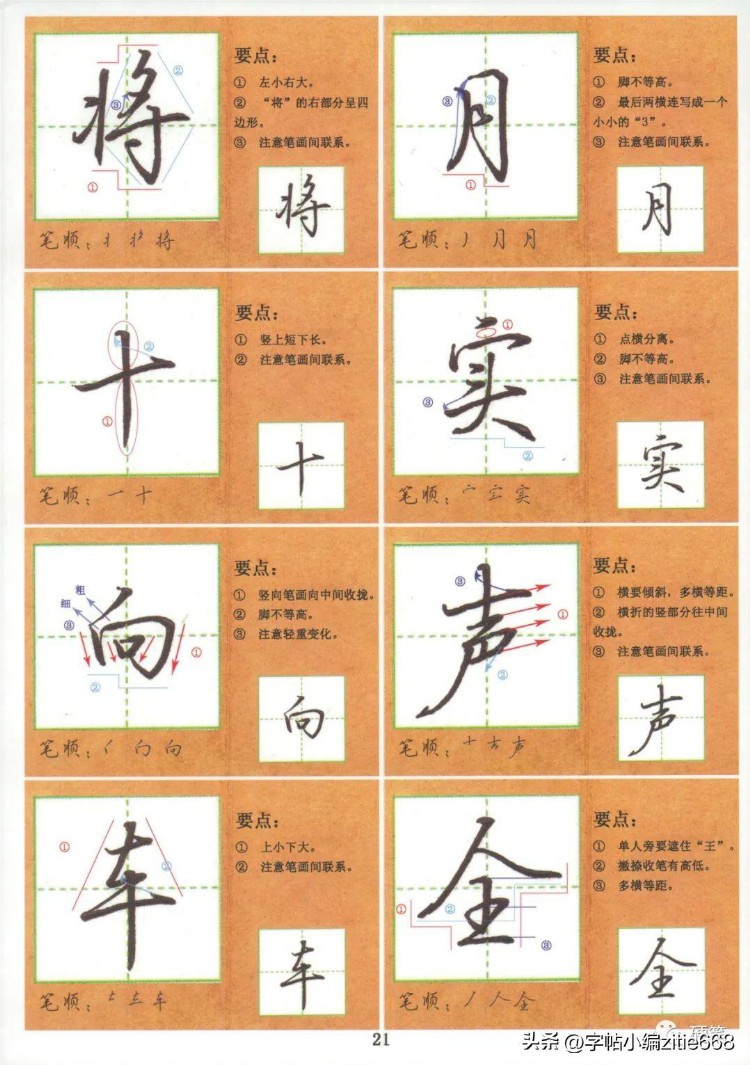 将
要点：
① 左小右大。
② “将”的右部分呈四
边形。
③ 注意笔画间联系。
②
③
①
将
笔顺：丬 将
月
要点：
① 脚不等高。
② 最后两横连写成一个
小小的“3”。
③ 注意笔画间联系。
③
②
①
月
笔顺：丿 月 月
十
要点：
① 竖上短下长。
② 注意笔画间联系。
②
①
十
笔顺：一 十
实
要点：
① 点横分离。
② 脚不等高。
③ 注意笔画间联系。
①
③
②
实
笔顺：宀 实
向
要点：
① 竖向笔画向中间收拢。
② 脚不等高。
③ 注意轻重变化。
粗
细
③
①
②
向
笔顺：向
声
要点：
① 横要倾斜，多横等距。
② 横折的竖部分往中间
收拢。
③ 注意笔画间联系。
③
①
②
声
笔顺：十 声
车
要点：
① 上小下大。
② 注意笔画间联系。
①
②
车
笔顺：车
全
要点：
① 单人旁要遮住“王”。
② 撇捺收笔有高低。
③ 多横等距。
①
②
③
全
笔顺：丿 人 全
21
头条 @字帖小编zitie668